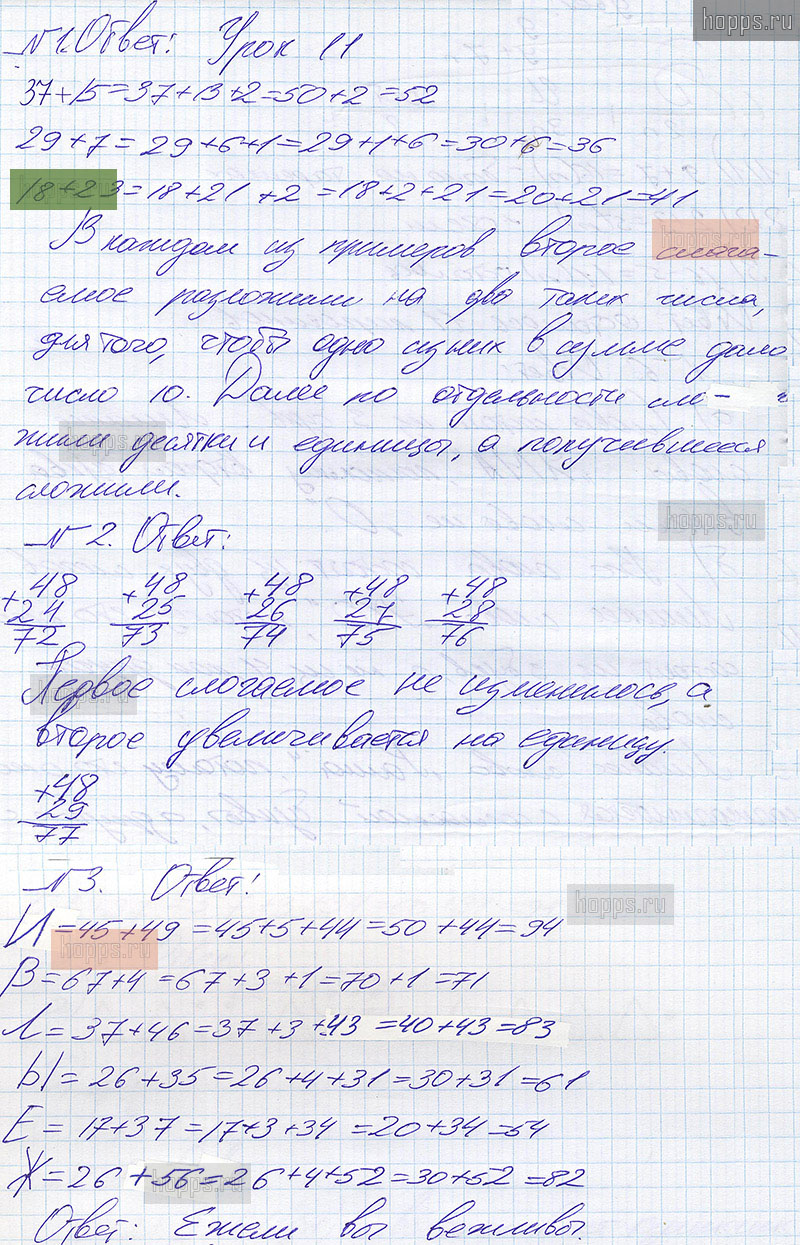 hopps.ru
№1. Ответ: Урок 11
37+15=37+13+2=50+2=52
29+7=29+6+1=29+1+6=30+6=36
18+23=18+21+2=18+2+21=20+21=41
В каждом из примеров второе слага-
емое разложили на два таких числа,
для того, чтобы одно из них в сумме дало
число 10. Далее по отдельности сло-
жили десятки и единицы, а получившееся
сложили.
hopps.ru
№2. Ответ:
+48 +48 +48 +48 +48
24 25 26 27 28
72 73 74 75 76
Первое слогаемое не изменилось, а
второе увеличивается на единицу.
+48
29
77
№3. Ответ:
hopps.ru
И=45+49=45+5+44=50+44=94
hopps.ru
В=67+4=67+3+1=70+1=71
Л=37+46=37+3+43=40+43=83
Ы=26+35=26+4+31=30+31=61
Е=17+37=17+3+34=20+34=54
Ж=26+56=26+4+52=30+52=82
Ответ: Ежели вы вежливы.